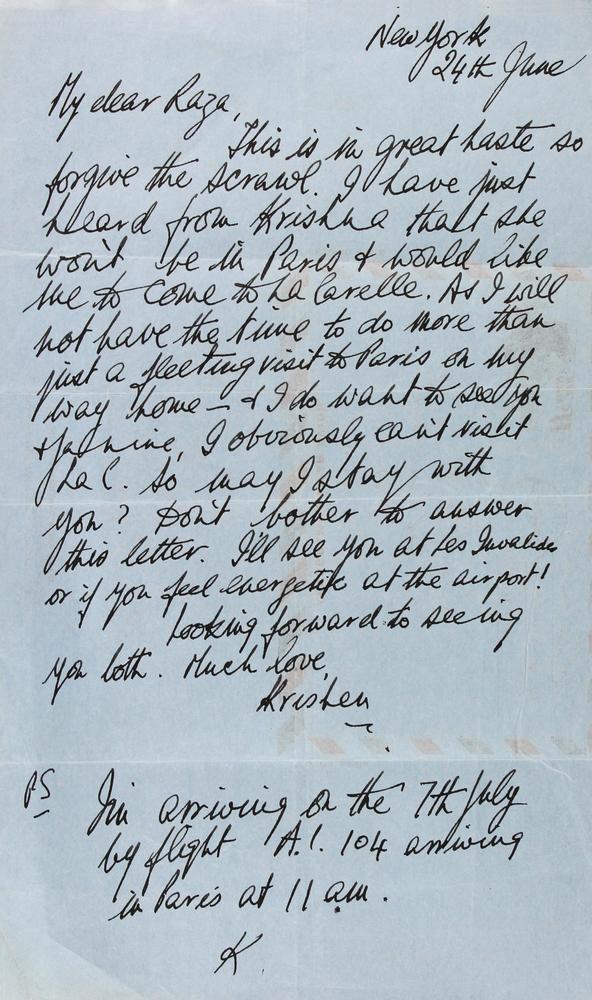 New York
24th June
My dear Raza,
This is in great haste so
forgive the scrawl. I have just
heard from Krishna that she
won't be in Paris & would like
me to come to La Carelle. As I will
not have the time to do more than
just a fleeting visit to Paris on my
way home — & I do want to see you
& Janine, I obviously can't visit
La C. So may I stay with
you? Don't bother to answer
this letter. I'll see you at Les Invalides
or if you feel energetic at the airport!
Looking forward to seeing
you both. Much love,
Krishen
PS
I'm arriving on the 7th July
by flight A.I. 104 arriving
in Paris at 11 am.
K.